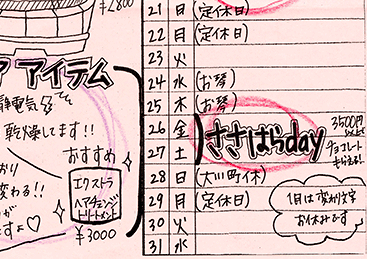 ¥2800
ア アイテム
静電気
乾燥してます!!
おすすめ
変わる!!
エクストラ
ヘアチェンジ
トリートメント
¥3000
21 日 (定休日)
22 月 (定休日)
23 火
24 水 (お琴)
25 木 (お琴)
26 金
27 土
ささはらday
3500円
チョコレート
もらえる!
28 日 (大川町休)
29 月 (定休日)
30 火
31 水
1月は変則文字
お休みです